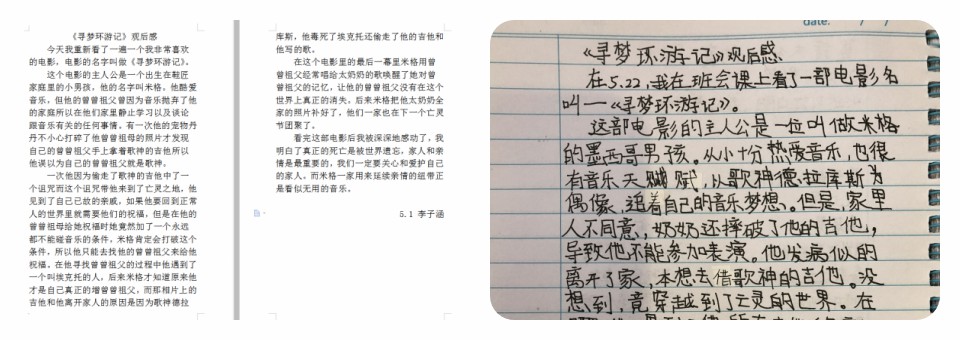 《寻梦环游记》观后感
今天我重新看了一遍一个我非常喜欢
的电影，电影的名字叫做《寻梦环游记》。
这个电影的主人公是一个出生在鞋匠
家庭里的小男孩，他的名字叫米格，他酷爱
音乐，但他的曾曾祖父曾因为音乐抛弃了他
的家庭所以在他们家里静止学习以及谈论
跟音乐有关的任何事情。有一次他的宠物丹
丹不小心打碎了他曾曾祖母的照片才发现
自己的曾曾祖父手上拿着歌神的吉他所以
他误以为自己的曾曾祖父就是歌神。
一次他因为偷走了歌神的吉他中了一
个诅咒而这个诅咒带他来到了亡灵之地，他
见到了自己已故的亲戚，如果他要回到正常
人的世界里就需要他们的祝福，但是在他的
曾曾祖母给她祝福时她竟然加了一个永远
都不能碰音乐的条件，米格肯定会打破这个
条件，所以他只能去找他的曾曾祖父来给他
祝福。在他寻找曾曾祖父的过程中他遇到了
一个叫埃克托的人，后来米格才知道原来他
才是自己真正的增曾曾祖父，而那相片上的
吉他和他离开家人的原因是因为歌神德拉
库斯，他毒死了埃克托还偷走了他的吉他和
他写的歌。
在这个电影里的最后一幕里米格用曾
曾曾祖父经常唱给太奶奶的歌唤醒了她对曾
曾祖父的记忆，让他的曾曾祖父没有在这个
世界上真正的消失。后来米格把他太奶奶全
家的照片补好了，他们一家也在下一个亡灵
节团聚了。
看完这部电影后我被深深地感动了，我
明白了真正的死亡是被世界遗忘，家人和亲
情是最重要的，我们一定要关心和爱护自己
的家人。而米格一家用来延续亲情的纽带正
是看似无用的音乐。
5.1 李子涵
date: / /
《寻梦环游记》观后感
在5.22，我在班会课上看了一部电影名
叫—《寻梦环游记》。
这部电影的主人公是一位叫做米格
的墨西哥男孩。从小十分热爱音乐，也很
有音乐天赋，以歌神德拉库斯为
偶像，追着自己的音乐梦想。但是，家里
人不同意，奶奶还摔破了他的吉他，
导致他不能参加表演。他发疯似的
离开了家，本想去借歌神的吉他。没
想到，竟穿越到了亡灵的世界。在